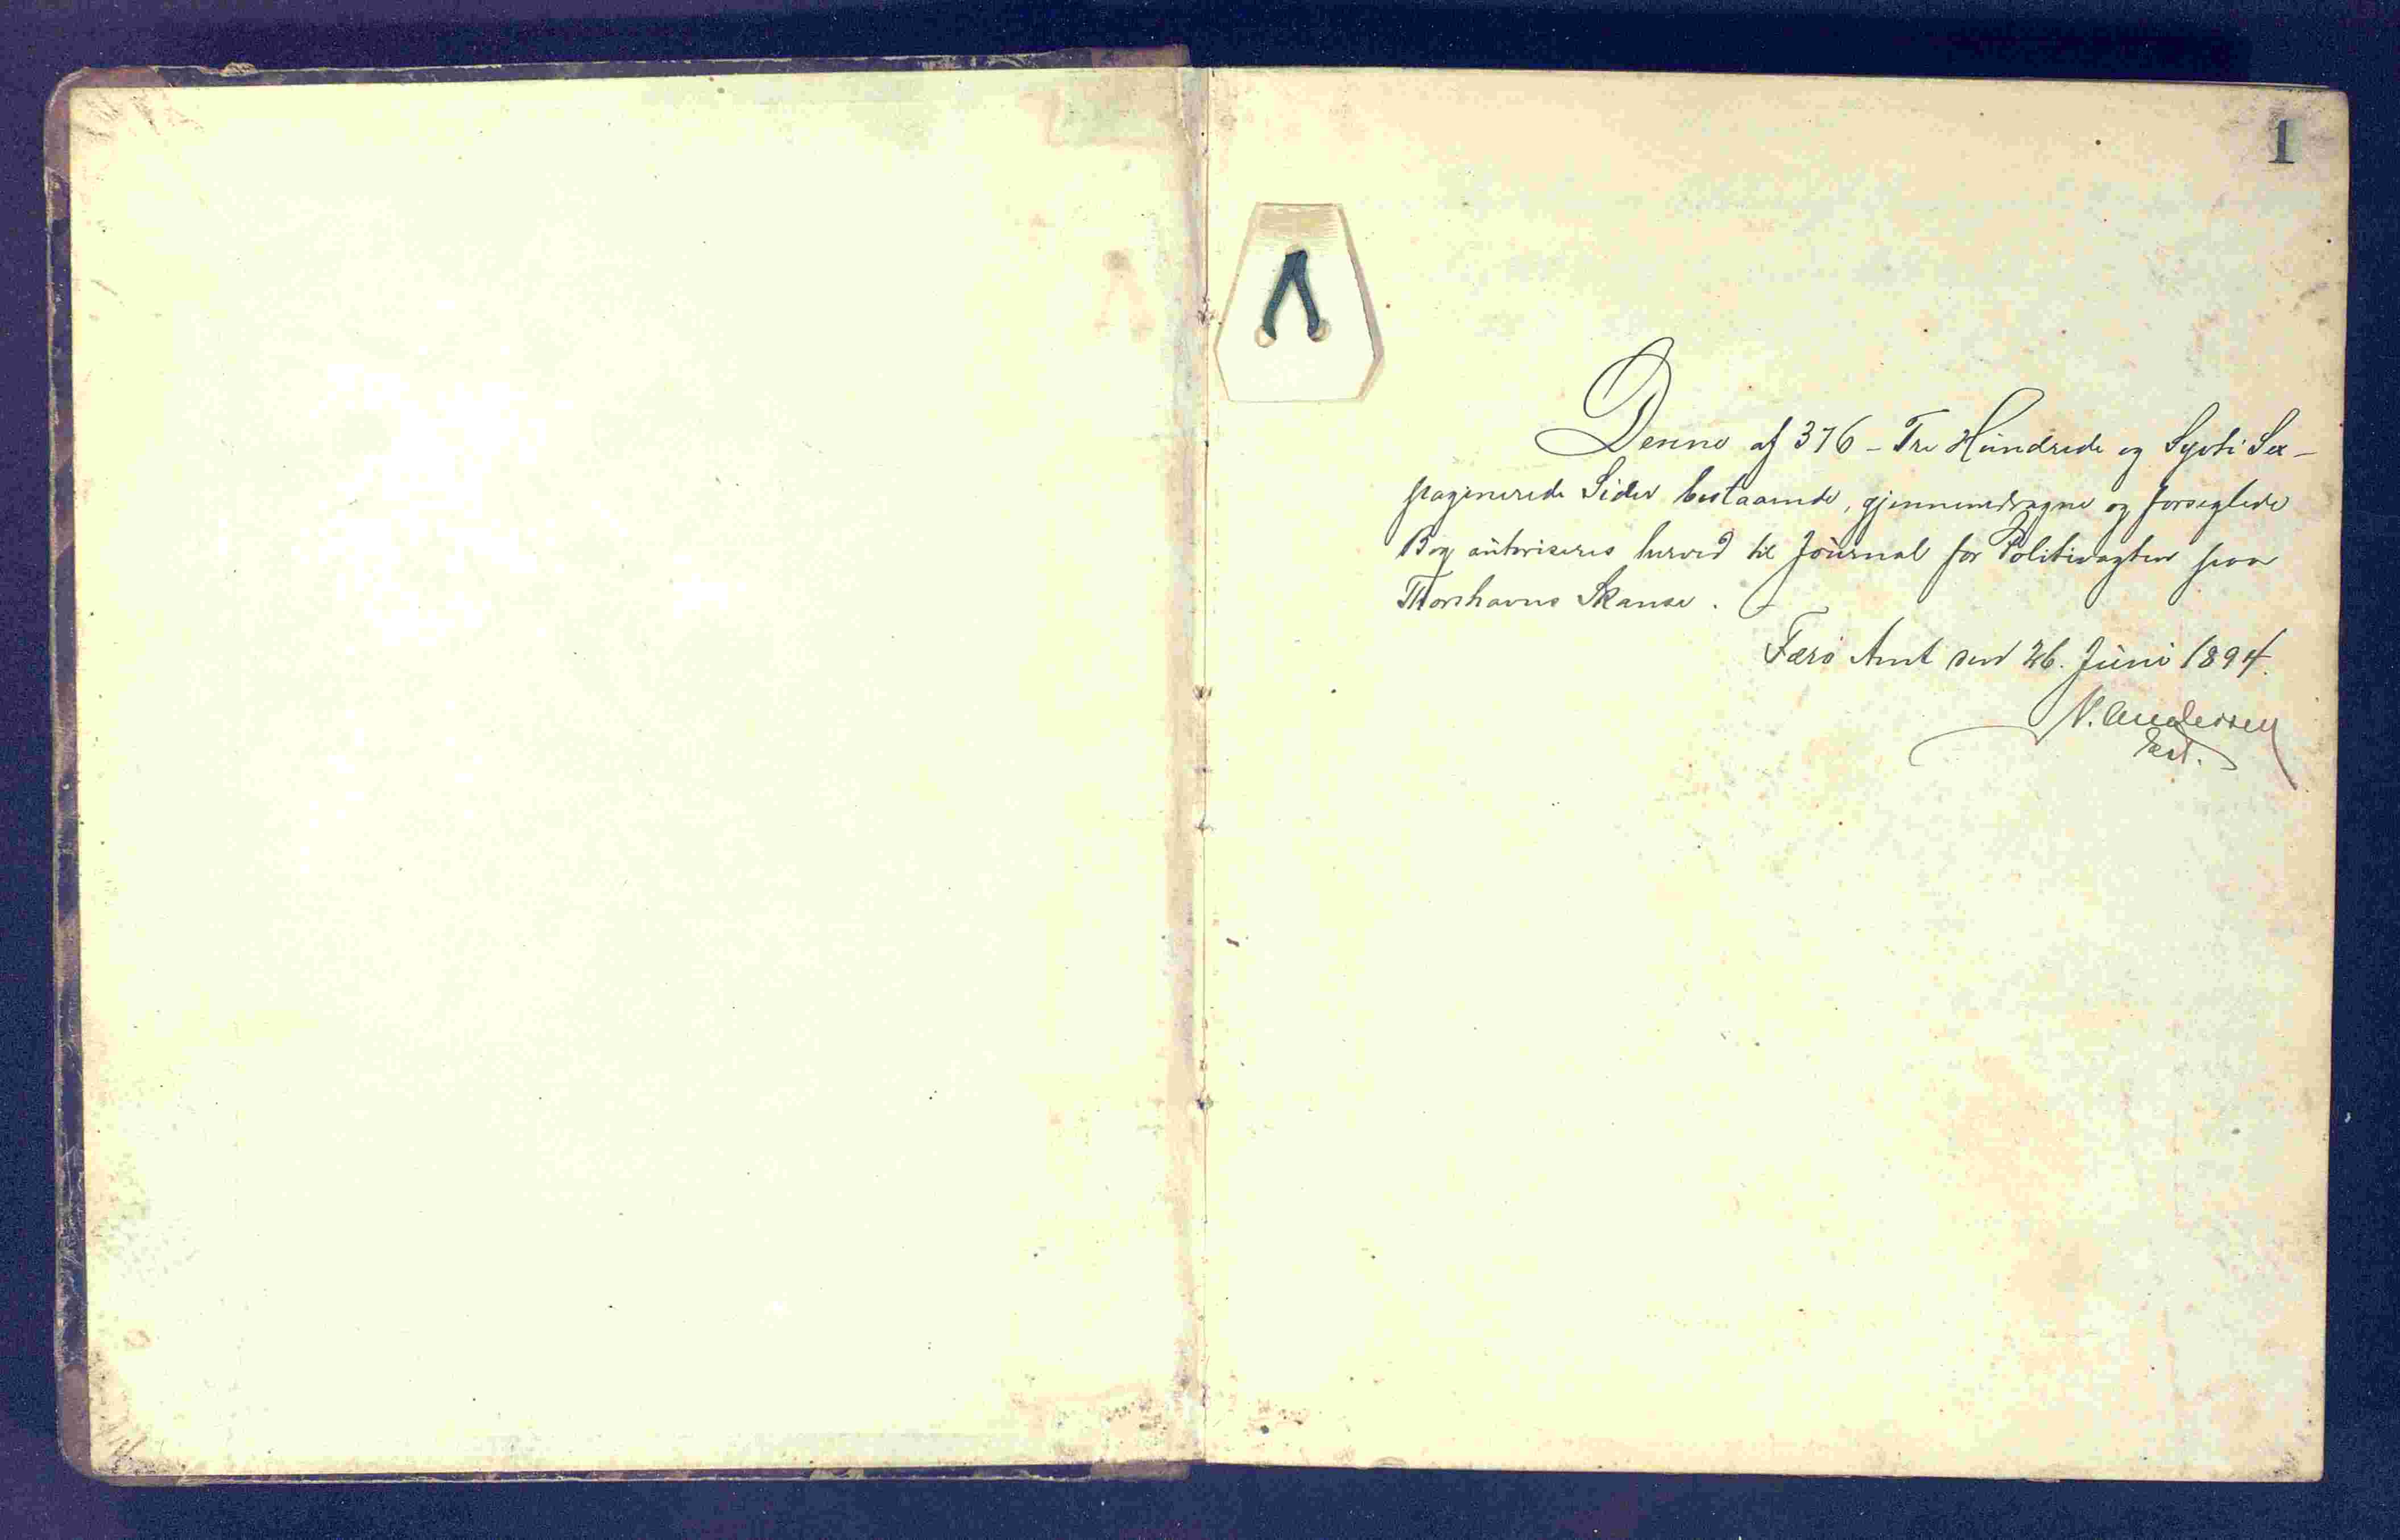 1
Denne af 376 - Tre Hundrede og Sytti Sex -
paginerede Sider bestaaende, gjennemdragne og forseglede
Bog autoriseres herved til Journal for Politivagten paa
Thorshavns Skanse.
Færø Amt den 26. Juni 1894.
N. Andersen